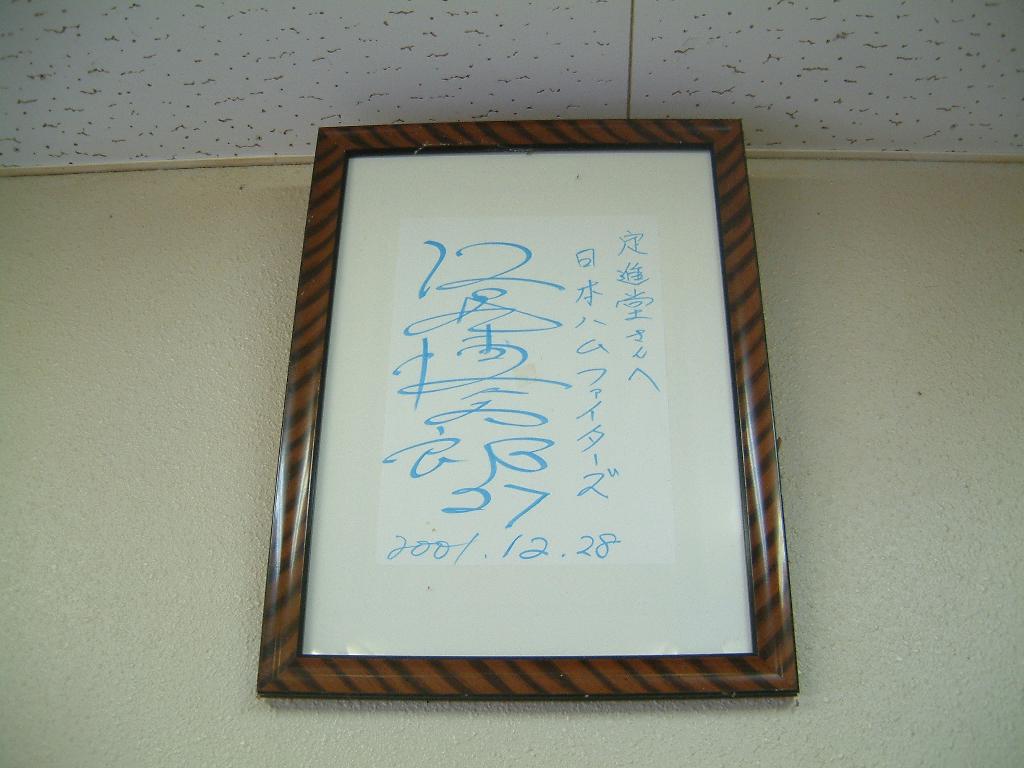 定進堂さんへ
日本ハムファイターズ
27
2001.12.28